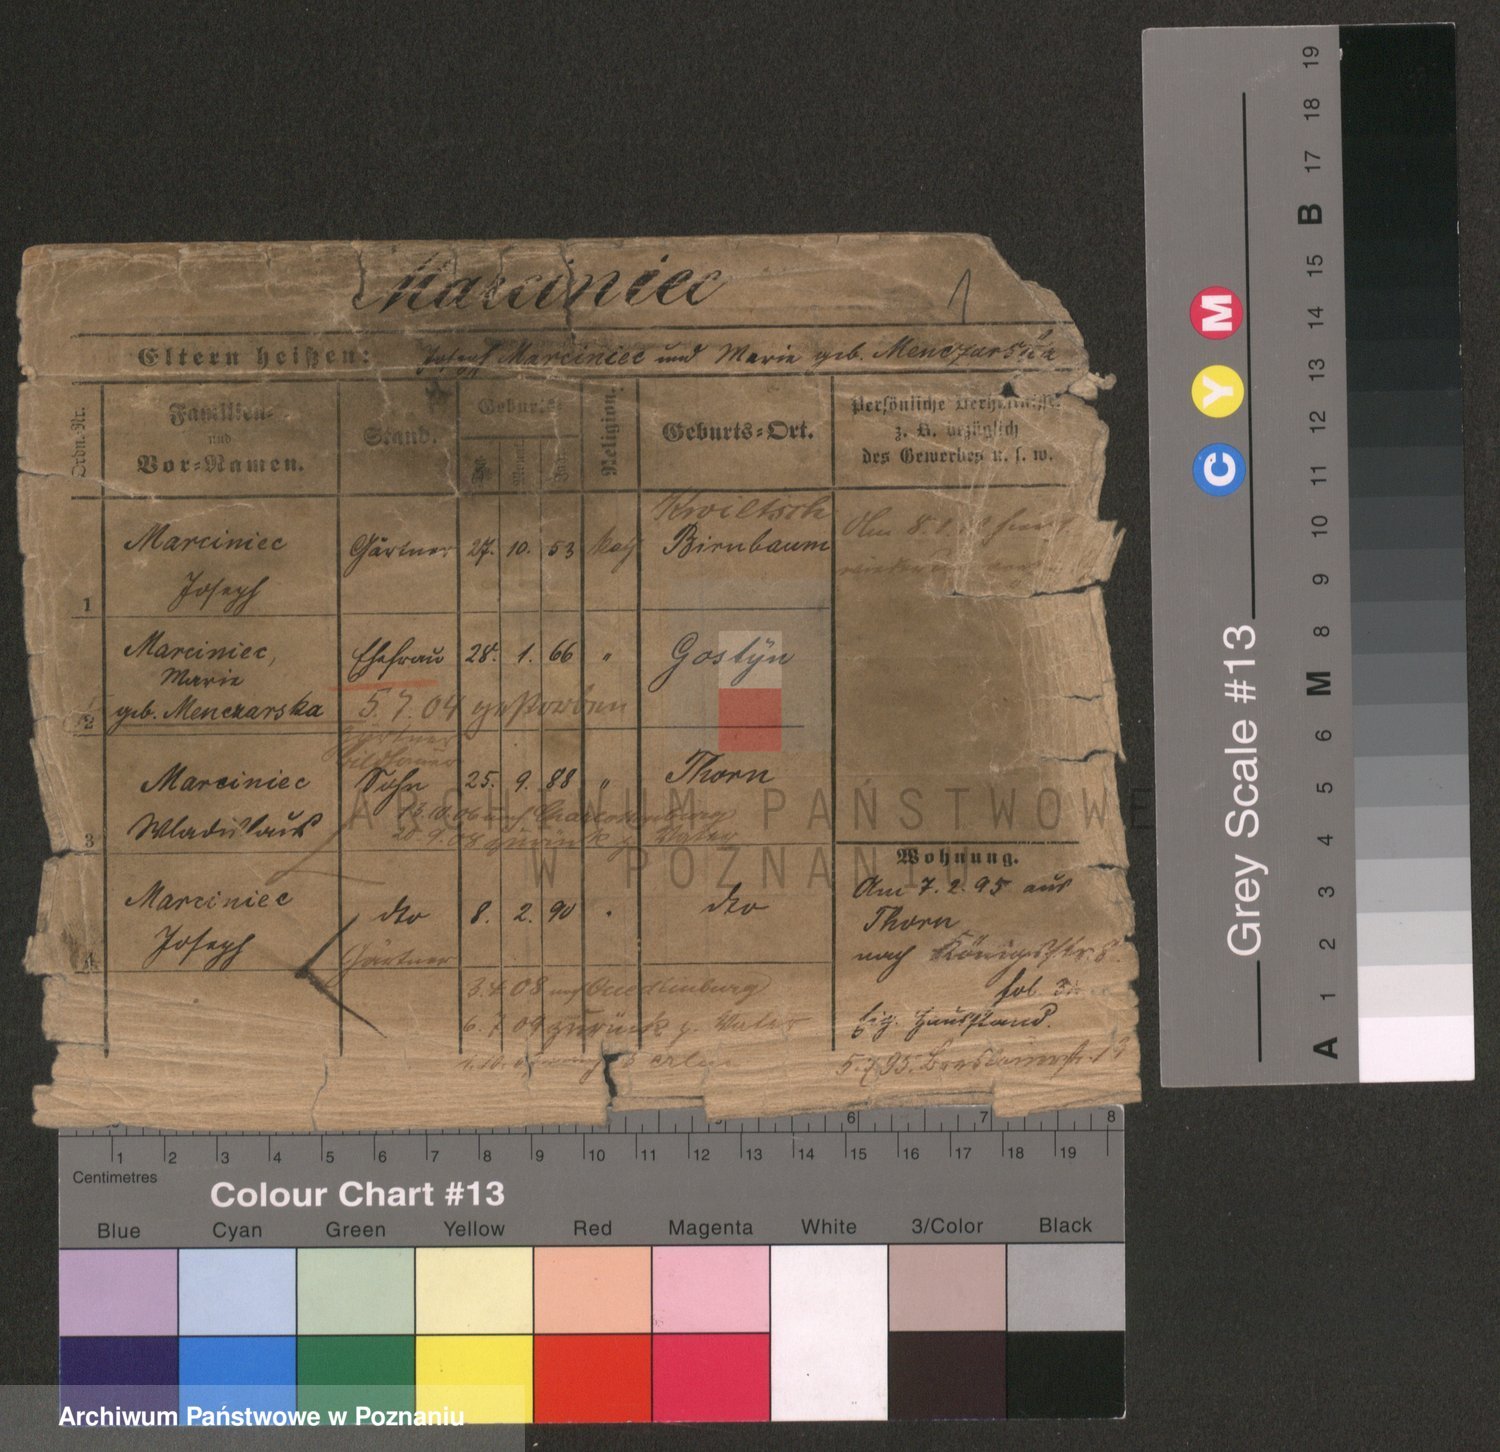 Marciniec
1
Eltern heißen: Joseph Marciniec und Marie geb. Menczarska
Ordn.-Nr.
Familien-
und
Vor-Namen.
Stand.
Geburts-
Tag
Mon.
Jahr
Religion.
Geburts-Ort.
Persönliche Verhältnisse
z. B. bezüglich
des Gewerbes u. s. w.
1
Marciniec
Joseph
Gärtner
27. 10. 53
kath
Kwiltsch
Birnbaum
Am 8.
wieder
2
Marciniec,
Marie
geb. Menczarska
Ehefrau
28. 1. 66
"
Gostÿn
5. 7. 04 gestorben
3
Marciniec
Wladislaus
Gärtner
Bildhauer
Sohn
25. 9. 88
"
Thorn
06 nach Charlottenburg
20. 9. 08 zurück z. Vater
4
Marciniec
Joseph
dto
8. 2. 90
"
dto
Gärtner
3. 4. 08 nach Quedlinburg
6. 7. 09 zurück z. Vater
Berlin
Wohnung.
Am 7. 2. 95 aus
Thorn
nach Königsstr. 8
fol.
Eig. Hausstand.
5. 7. 95. Breslauerstr. 13
ARCHIWUM PAŃSTWOWE
W POZNANIU
Grey Scale #13
C Y M
A 1 2 3 4 5 6 M 8 9 10 11 12 13 14 15 B 17 18 19
5 6 7 8
1 2 3 4 5 6 7 8 9 10 11 12 13 14 15 16 17 18 19
Centimetres
Colour Chart #13
Blue Cyan Green Yellow Red Magenta White 3/Color Black
Archiwum Państwowe w Poznaniu